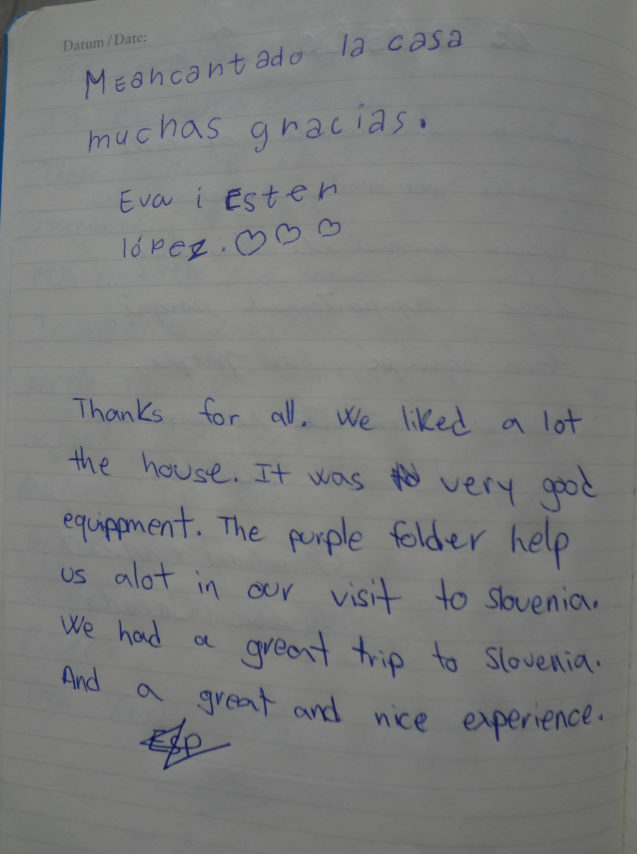 Datum / Date:
Meancantado la casa
muchas gracias.
Eva i Ester
lópez. ♡♡♡
Thanks for all. We liked a lot
the house. It was very good
equippment. The purple folder help
us alot in our visit to Slovenia.
We had a great trip to Slovenia.
And a great and nice experience.